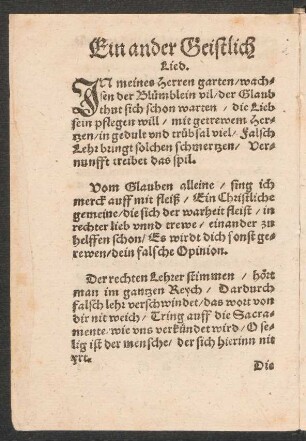 Ein ander Geistlich
Lied.
IN meines Herren garten / wach-
sen der Blümblein vil / der Glaub
thut sich schon warten / die Lieb
sein pflegen will / mit getrewem Her-
tzen / in gedult vnd trübsal viel / Falsch
Lehr bringt solchen schmertzen / Ver-
nunfft treibet das spil.
Vom Glauben alleine / sing ich
merck auff mit fleiß / Ein Christliche
gemeine / die sich der warheit fleist / in
rechter lieb vnnd trewe / einander zu
helffen schon / Es wirdt dich sonst ge-
rewen / dein falsche Opinion.
Der rechten Lehrer stimmen / hört
man im gantzen Reych / Dardurch
falsch lehr verschwindet / das wort von
dir nit weich / Tring auff die Sacra-
mente / wie vns verkündet wird / O se-
lig ist der mensche / der sich hierinn nit
yrt.
Die